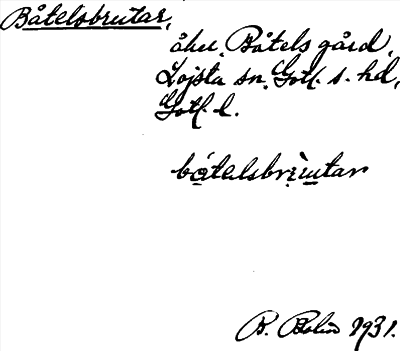 Båtelsbrutar,
åker, Båtels gård,
Lojsta sn. Gotl. s. hd,
Gotl. l.
bátelsbrìu̲tar
B. Bolin 1931.